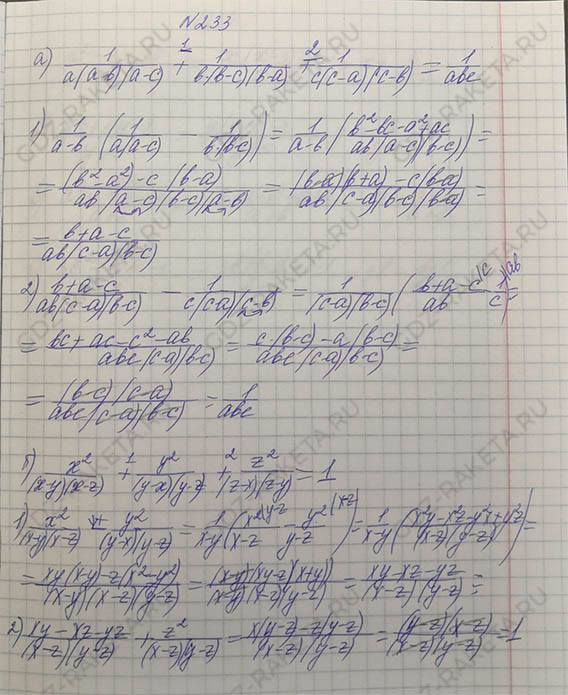 N 233
а) 1/(a(a-b)(a-c)) +¹ 1/(b(b-c)(b-a)) +² 1/(c(c-a)(c-b)) = 1/abc
1) 1/(a-b) (1/(a(a-c)) - 1/(b(b-c))) = 1/(a-b) ((b²-bc-a²+ac)/(ab(a-c)(b-c))) =
= ((b²-a²)-c(b-a))/(ab(a-c)(b-c)(a-b)) = ((b-a)(b+a)-c(b-a))/(ab(c-a)(b-c)(b-a)) =
= (b+a-c)/(ab(c-a)(b-c))
2) (b+a-c)/(ab(c-a)(b-c)) - 1/(c(c-a)(c-b)) = 1/((c-a)(b-c)) ((b+a-c)/ab \c - 1/c \ab) =
= (bc+ac-c²-ab)/(abc(c-a)(b-c)) = (c(b-c)-a(b-c))/(abc(c-a)(b-c)) =
= ((b-c)(c-a))/(abc(c-a)(b-c)) = 1/abc
б) x²/((x-y)(x-z)) +¹ y²/((y-x)(y-z)) +² z²/((z-x)(z-y)) = 1
1) x²/((x-y)(x-z)) + y²/((y-x)(y-z)) = 1/(x-y) (x²/(x-z) \y-z - y²/(y-z) \x-z) = 1/(x-y) ((x²y-x²z-y²x+y²z)/((x-z)(y-z))) =
= (xy(x-y)-z(x²-y²))/((x-y)(x-z)(y-z)) = ((x-y)(xy-z)(x+y))/((x-y)(x-z)(y-z)) = (xy-xz-yz)/((x-z)(y-z)) =
2) (xy-xz-yz)/((x-z)(y-z)) + z²/((x-z)(y-z)) = (x(y-z)-z(y-z))/((x-z)(y-z)) = ((y-z)(x-z))/((x-z)(y-z)) = 1
GDZ-RAKETA.RU